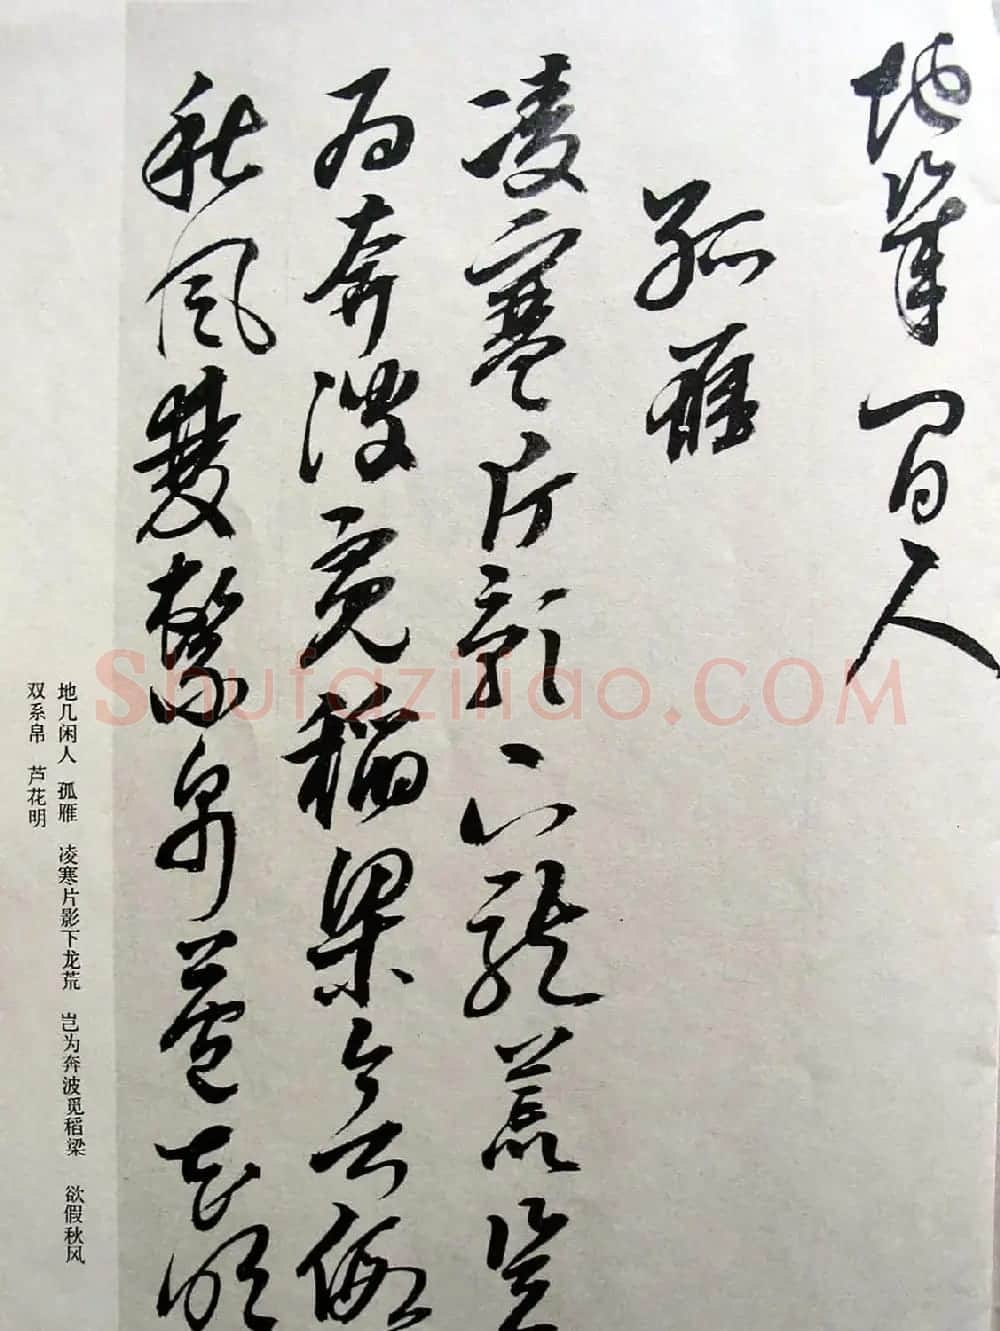 地幾閒人
孤雁
凌寒片影下龍荒豈
為奔波覓稻梁欲假
秋風雙繫帛蘆花明
地几闲人 孤雁 凌寒片影下龙荒 岂为奔波觅稻梁 欲假秋风
双系帛 芦花明
Shufaziliao.COM